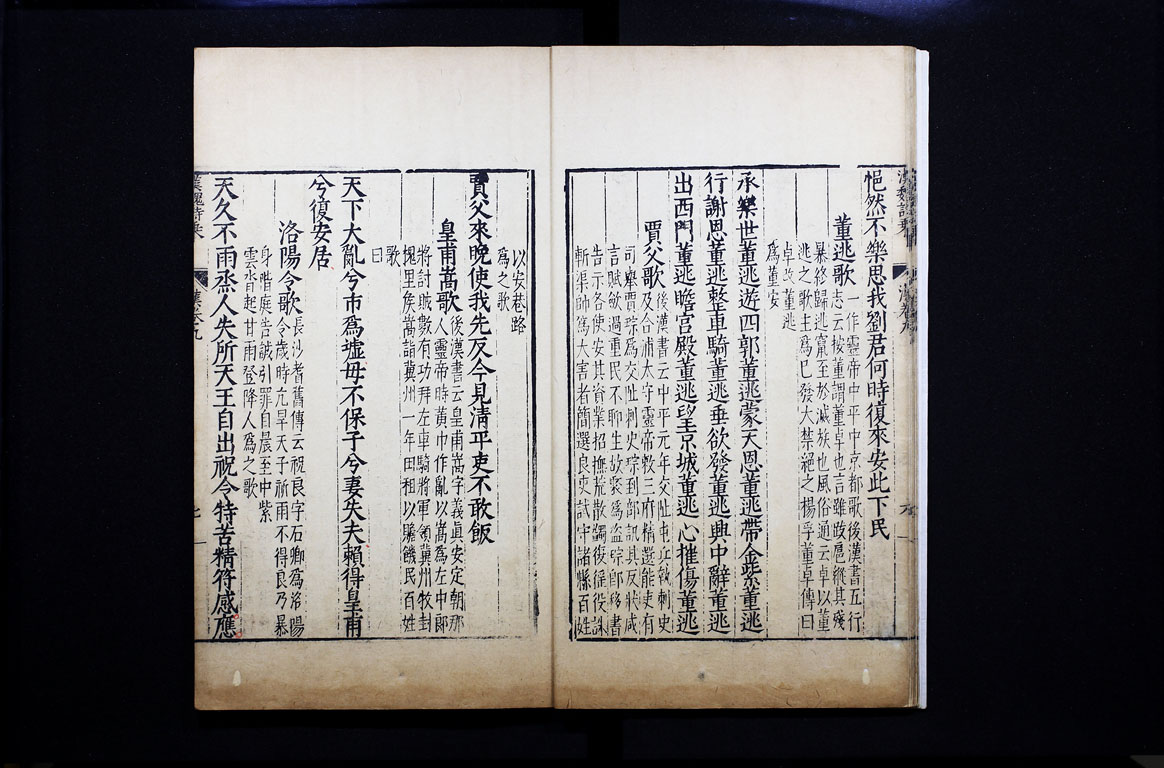 悒然不樂思我劉君何時復來安此下民
董逃歌
一作靈帝中平中京都歌後漢書五行
志云按董謂董卓也言雖跋扈縱其殘
暴終歸逃竄至於滅族也風俗通云卓以董
逃之歌主爲已發大禁絕之楊孚董卓傳曰
卓改董逃
爲董安
承樂世董逃遊四郭董逃蒙天恩董逃帶金紫董逃
行謝恩董逃整車騎董逃垂欲發董逃與中辭董逃
出西門董逃瞻宮殿董逃望京城董逃心摧傷董逃
賈父歌
後漢書云中平元年交阯屯兵執刺史
及合浦太守靈帝敕三府精選能吏有
司舉賈琮爲交阯刺史琮到部訊其反狀咸
言賦斂過重民不聊生故聚爲盜琮卽移書
告示各使安其資業招撫荒散蠲復徭役誅
斬渠帥爲大害者簡選良吏試守諸縣百姓
以安巷路
爲之歌
賈父來晚使我先反今見清平吏不敢飯
皇甫嵩歌
後漢書云皇甫嵩字義眞安定朝那
人靈帝時黃巾作亂以嵩爲左中郎
將討賊數有功拜左車騎將軍領冀州牧封
槐里侯嵩請冀州一年田租以贍饑民百姓
歌
曰
天下大亂兮市爲墟母不保子兮妻失夫賴得皇甫
兮復安居
洛陽令歌
長沙耆舊傳云祝良字石卿爲洛陽
令歲時亢旱天子祈雨不得良乃暴
身階庭告誠引罪自晨至中紫
雲沓起甘雨登降人爲之歌
天久不雨烝人失所天王自出祝令特苦精符感應
漢魏詩乘
漢卷九